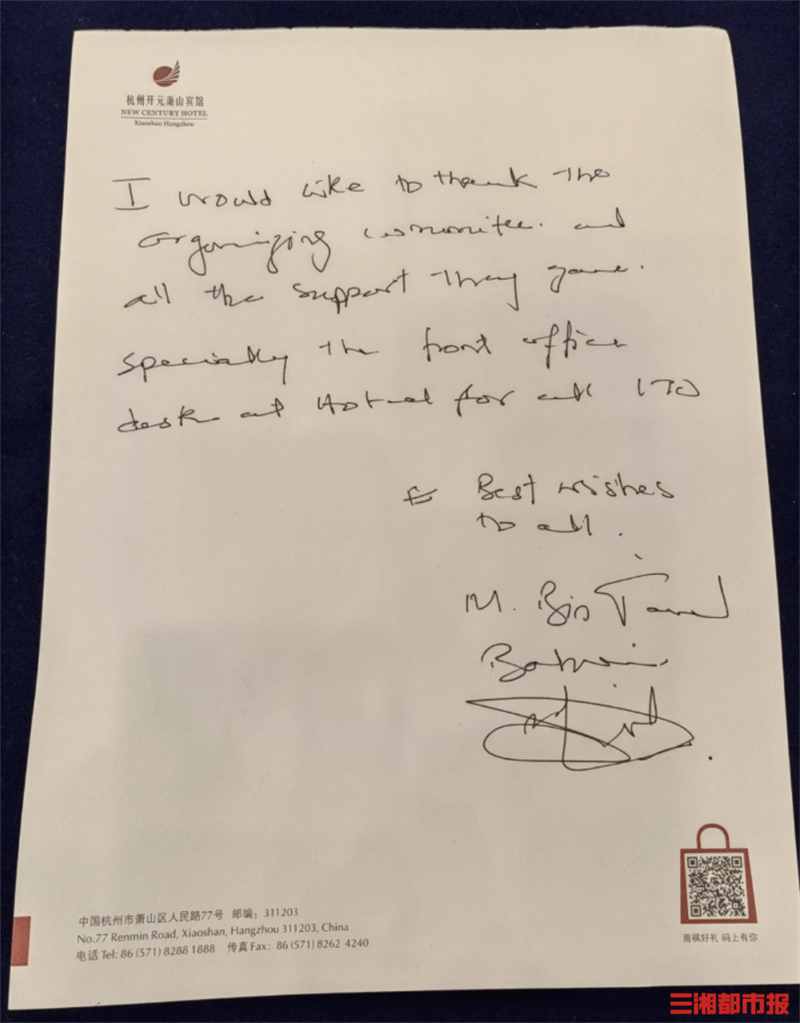 杭州开元萧山宾馆
NEW CENTURY HOTEL
Xiaoshan Hangzhou
I would like to thank the
organizing committee. and
all the support they gave.
specially the front office
desk at Hotel for all ITO
Best wishes
to all.
M. Bin
Bahrain
中国杭州市萧山区人民路77号 邮编：311203
No.77 Renmin Road, Xiaoshan, Hangzhou 311203, China
电话 Tel: 86 (571) 8288 1888 传真 Fax: 86 (571) 8262 4240
商祺好礼 码上有你
三湘都市报